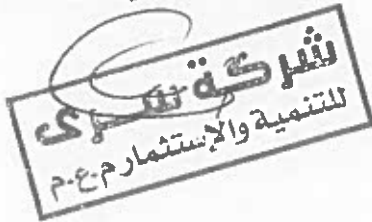 شركة سرى
للتنمية والإستثمار م.ع.م